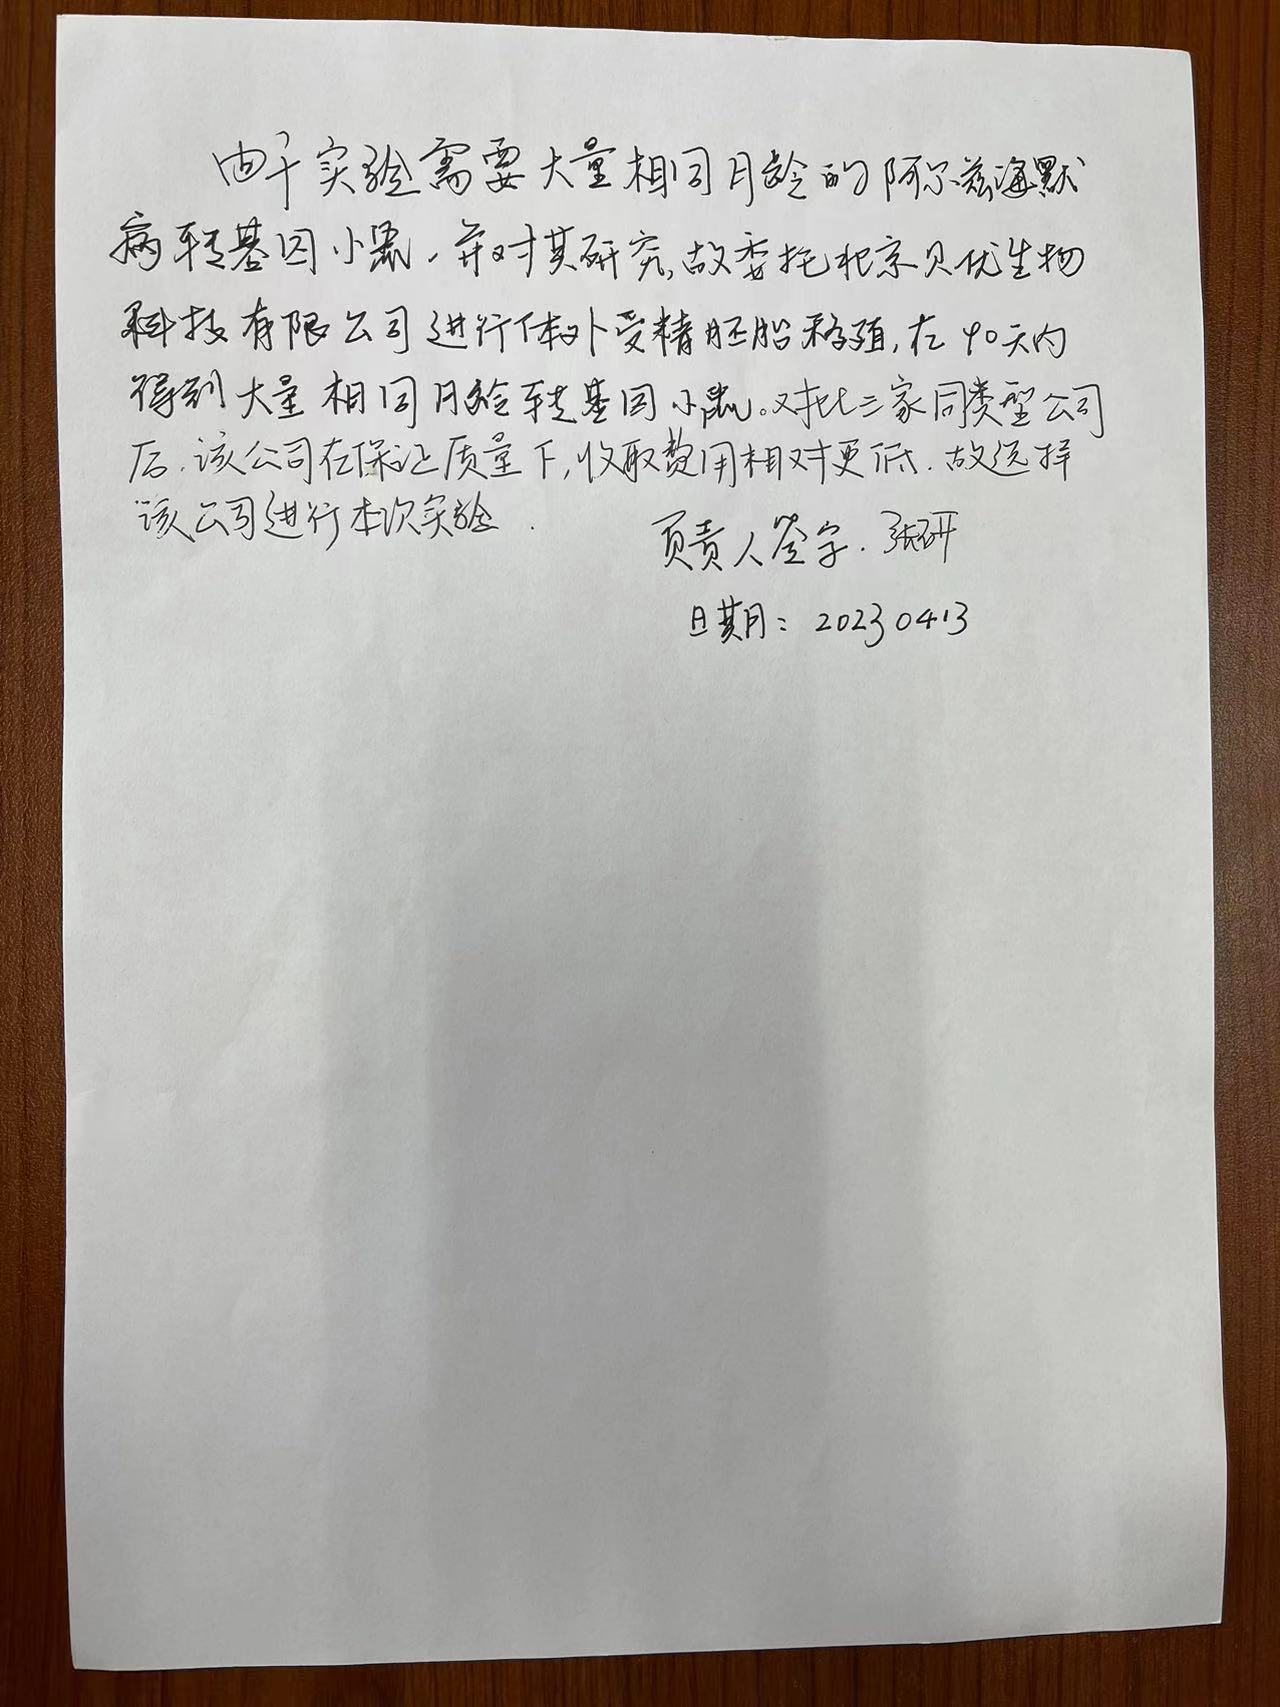 由于实验需要大量相同月龄的阿尔兹海默
病转基因小鼠，并对其研究，故委托北京贝优生物
科技有限公司进行体外受精胚胎移殖，在90天内
得到大量相同月龄转基因小鼠。对比三家同类型公司
后，该公司在保证质量下，收取费用相对更低，故选择
该公司进行本次实验.
负责人签字.张研
日期：20230413